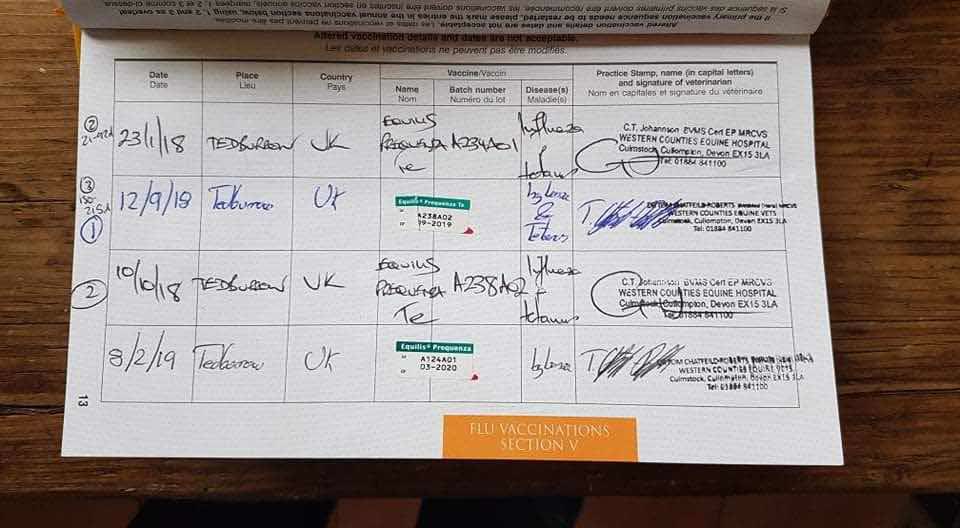 Si la séquence des vaccins primaires doivent être recommencée, les vaccinations doivent être inscrites en section vaccins annuels, marquées 1, 2 et 3 comme ci-dessus
If the primary vaccination sequence needs to be restarted, please mark the entries in the annual vaccinations section, using 1, 2 and 3 as overleaf
Altered vaccination details and dates are not acceptable. Les dates et vaccinations ne peuvent pas être modifiés.
Altered vaccination details and dates are not acceptable.
Les dates et vaccinations ne peuvent pas être modifiés.
Date Place Country Vaccine/Vaccin Practice Stamp, name (in capital letters)
Date Lieu Pays and signature of veterinarian
Name Batch number Disease(s) Nom en capitales et signature du vétérinaire
Nom Numéro du lot Maladie(s)
2
21-92d
23/1/18 TEDBURROW UK EQUILIS PREQUENZA Te A234A01 Influenza & tetanus
C.T. Johannson BVMS Cert EP MRCVS
WESTERN COUNTIES EQUINE HOSPITAL
Culmstock, Cullompton, Devon EX15 3LA
Tel: 01884 841100
3
150-215d
1
12/9/18 Tedburrow UK
Equilis® Prequenza Te
A238A02
09-2019
& Tetanus
T.
TOM CHATFEILD-ROBERTS MRCVS
WESTERN COUNTIES EQUINE VETS
Culmstock, Cullompton, Devon EX15 3LA
Tel: 01884 841100
2
10/10/18 TEDBURROW UK EQUILIS PREQUENZA Te A238A02 Influenza & tetanus
C.T. Johannson BVMS Cert EP MRCVS
WESTERN COUNTIES EQUINE HOSPITAL
Culmstock, Cullompton, Devon EX15 3LA
Tel: 01884 841100
8/2/19 Tedburrow UK
Equilis® Prequenza
A124A01
03-2020
T.
TOM CHATFEILD-ROBERTS
WESTERN COUNTIES EQUINE VETS
Culmstock, Cullompton, Devon EX15 3LA
Tel: 01884 841100
13
FLU VACCINATIONS
SECTION V